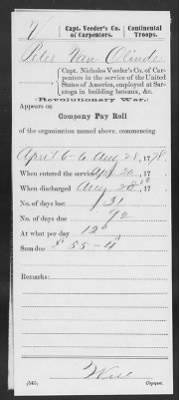 V
Capt. Veeder's Co. of Carpenters.
Continental Troops.
Peter Van Olinde
Capt. Nicholas Veeder's Co. of Carpenters in the service of the United States of America, employed at Saratoga in building batteaux, &c.
(Revolutionary War.)
Appears on
Company Pay Roll
of the organization named above, commencing
April 6 to Aug 28, 1778.
When entered the service Apr 20, 1778
When discharged Aug 28, 1778.
No. of days lost 31
No. of days due
At what per day 12
Sum due £ 55-4
Remarks:
(545)
Copyist.